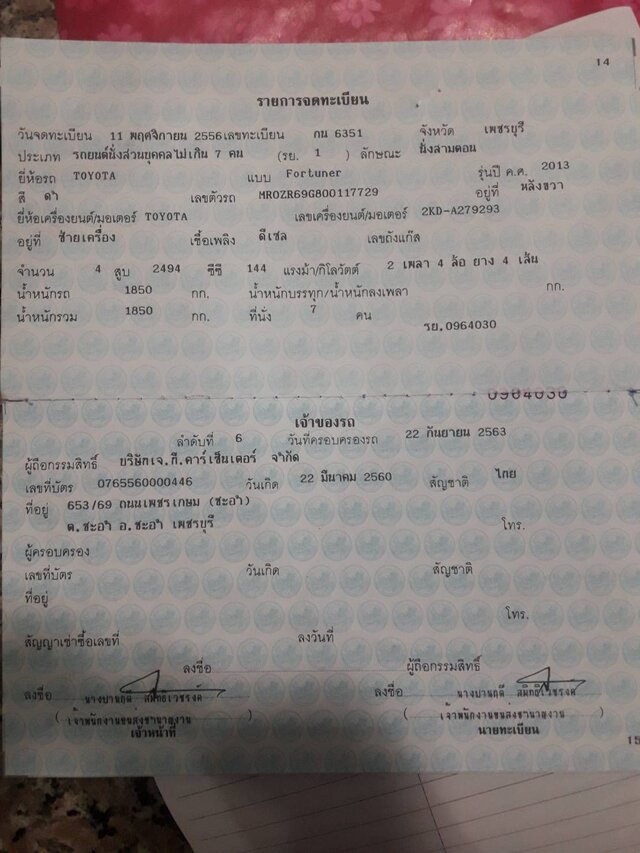 14
รายการจดทะเบียน
วันจดทะเบียน 11 พฤศจิกายน 2556 เลขทะเบียน กน 6351 จังหวัด เพชรบุรี
ประเภท รถยนต์นั่งส่วนบุคคลไม่เกิน 7 คน (รย. 1 ) ลักษณะ นั่งสามตอน
ยี่ห้อรถ TOYOTA แบบ Fortuner รุ่นปี ค.ศ. 2013
สี ดำ เลขตัวรถ MROZR69G800117729 อยู่ที่ หลังขวา
ยี่ห้อเครื่องยนต์/มอเตอร์ TOYOTA เลขเครื่องยนต์/มอเตอร์ 2KD-A279293
อยู่ที่ ซ้ายเครื่อง เชื้อเพลิง ดีเซล เลขถังแก๊ส
จำนวน 4 สูบ 2494 ซีซี 144 แรงม้า/กิโลวัตต์ 2 เพลา 4 ล้อ ยาง 4 เส้น
น้ำหนักรถ 1850 กก. น้ำหนักบรรทุก/น้ำหนักลงเพลา กก.
น้ำหนักรวม 1850 กก. ที่นั่ง 7 คน
รย.0964030
0964030
เจ้าของรถ
ลำดับที่ 6 วันที่ครอบครองรถ 22 กันยายน 2563
ผู้ถือกรรมสิทธิ์ บริษัทเจ.ที.คาร์เซ็นเตอร์ จำกัด
เลขที่บัตร 0765560000446 วันเกิด 22 มีนาคม 2560 สัญชาติ ไทย
ที่อยู่ 653/69 ถนนเพชรเกษม (ชะอำ)
ต.ชะอำ อ.ชะอำ เพชรบุรี โทร.
ผู้ครอบครอง
เลขที่บัตร วันเกิด สัญชาติ
ที่อยู่
โทร.
สัญญาเช่าซื้อเลขที่ ลงวันที่
ลงชื่อ ผู้ถือกรรมสิทธิ์
ลงชื่อ ลงชื่อ
( เจ้าพนักงานขนส่งชำนาญงาน ) ( เจ้าพนักงานขนส่งชำนาญงาน )
เจ้าหน้าที่ นายทะเบียน
15